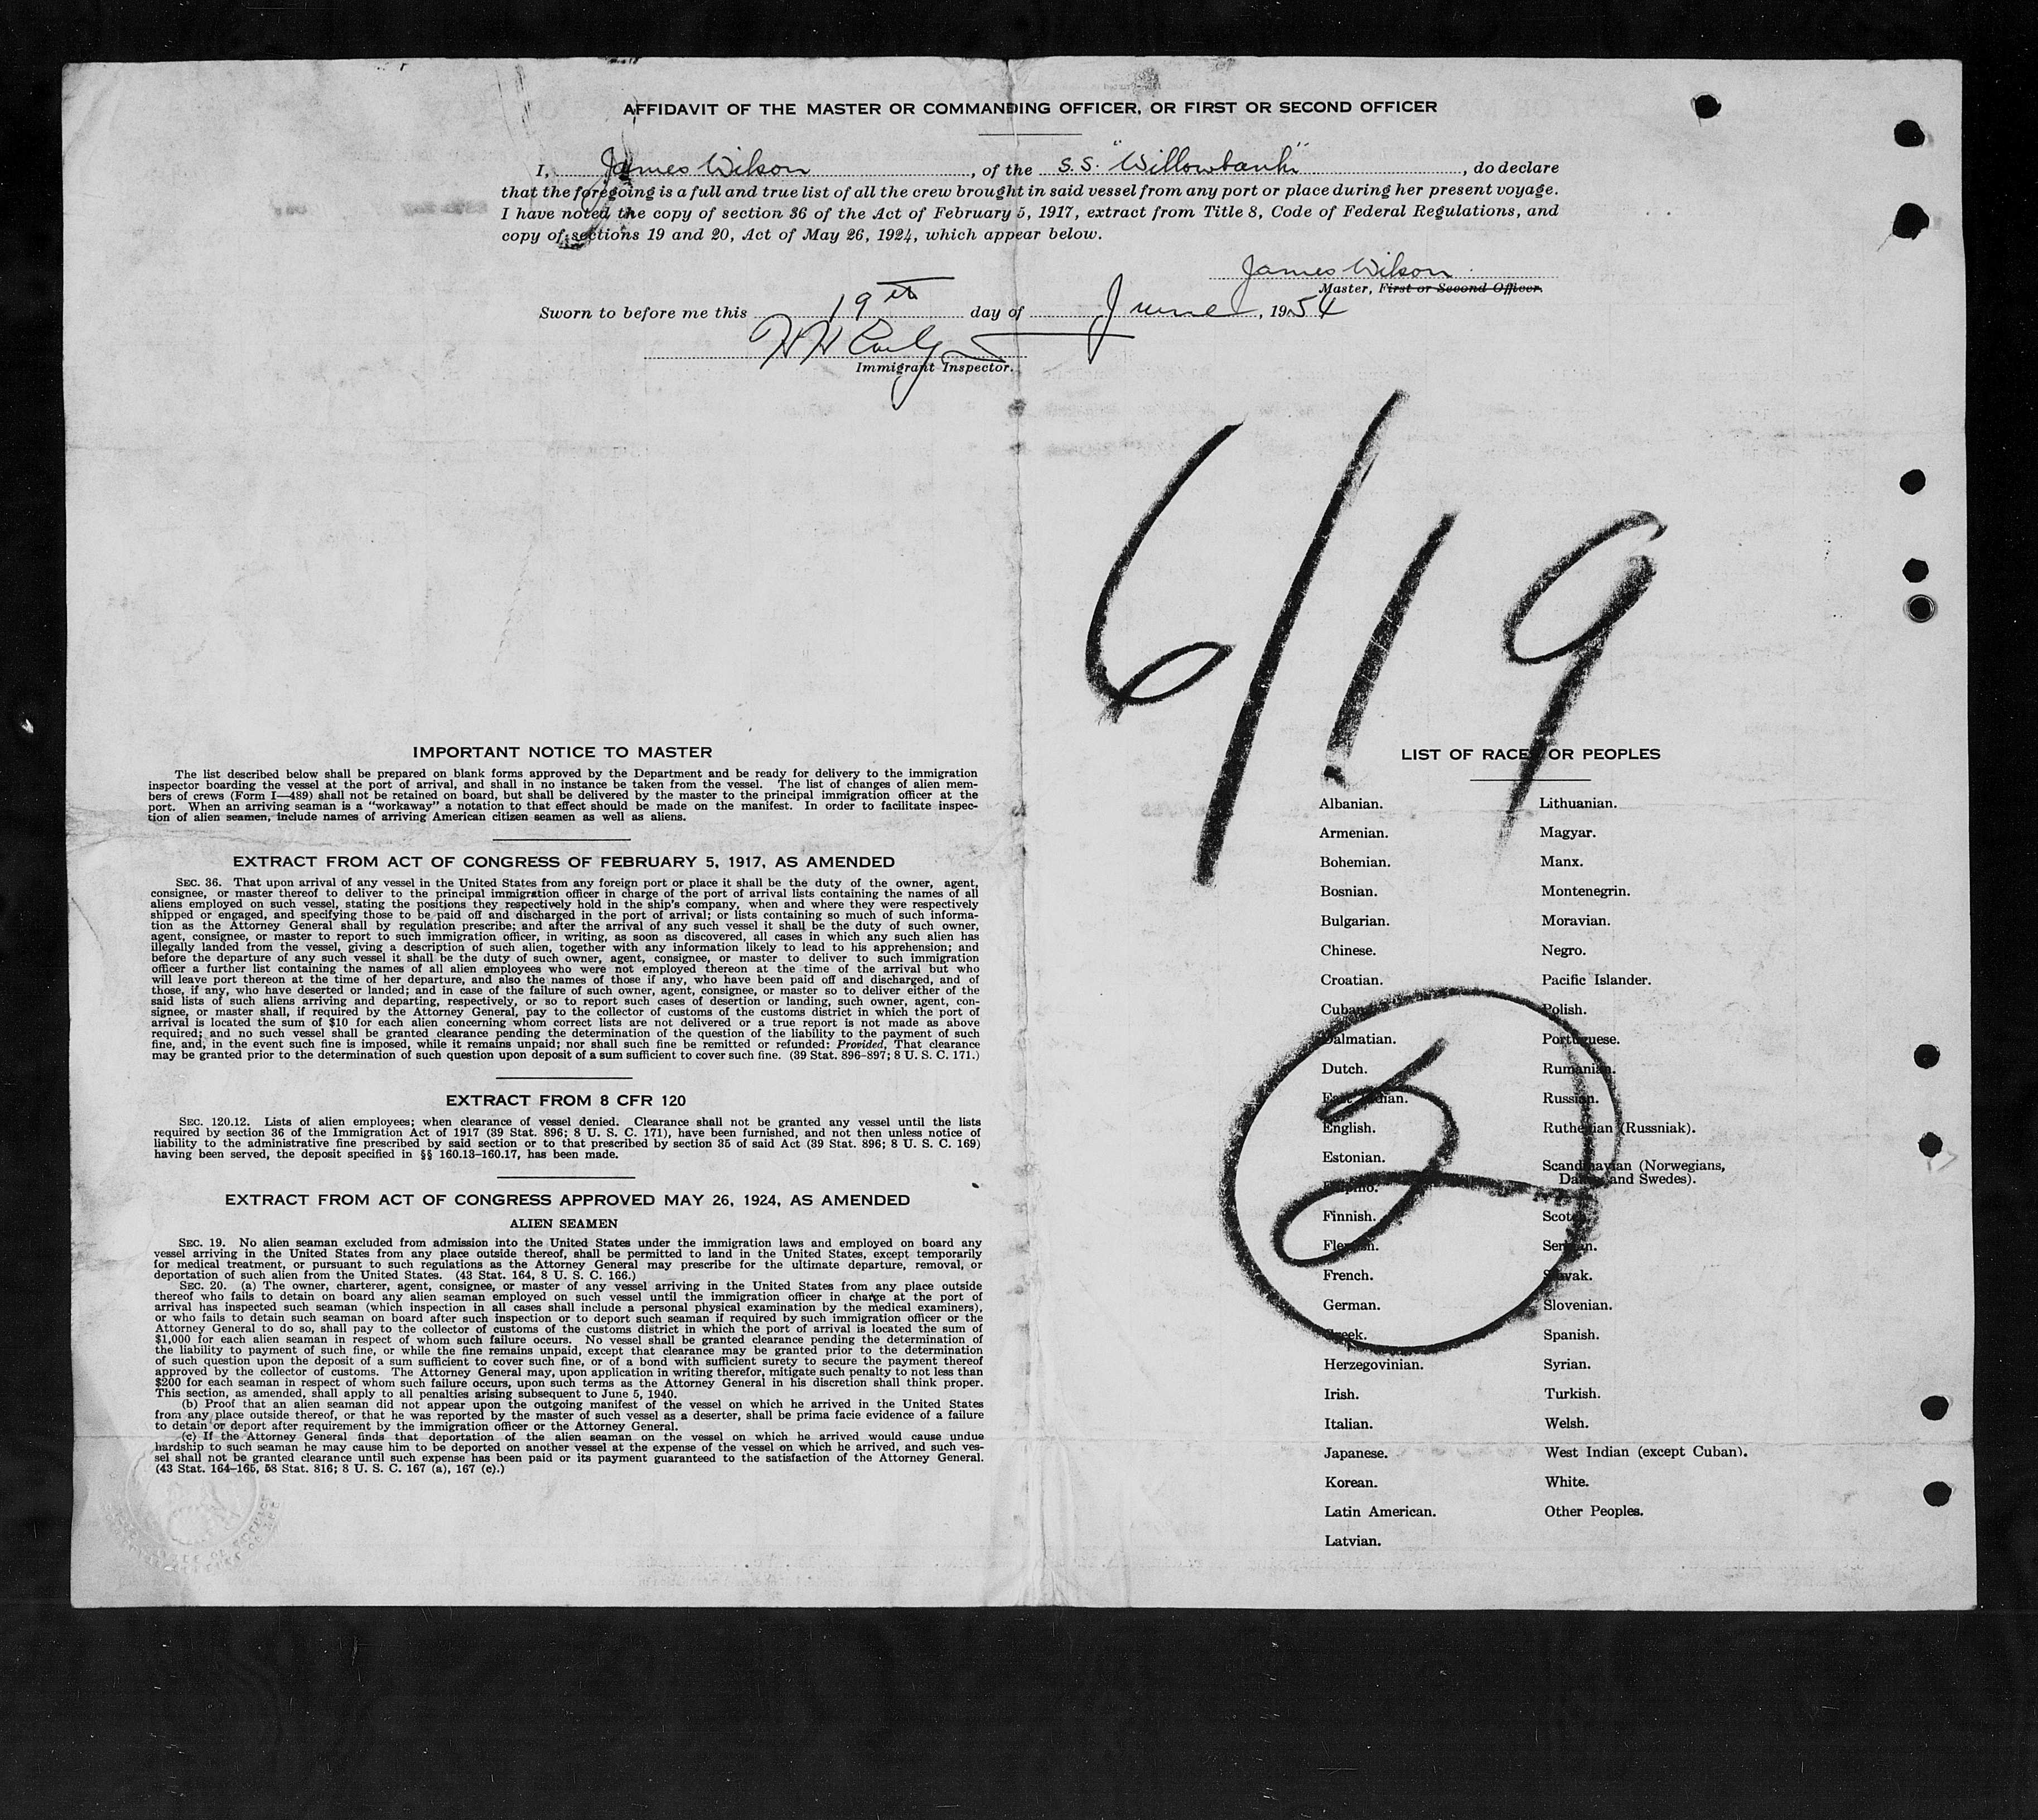 AFFIDAVIT OF THE MASTER OR COMMANDING OFFICER, OR FIRST OR SECOND OFFICER
I, James Wilson, of the S.S. "Willowbank", do declare
that the foregoing is a full and true list of all the crew brought in said vessel from any port or place during her present voyage.
I have noted the copy of section 36 of the Act of February 5, 1917, extract from Title 8, Code of Federal Regulations, and
copy of sections 19 and 20, Act of May 26, 1924, which appear below.
James Wilson
Master, First or Second Officer.
Sworn to before me this 19th day of June, 1954
Immigrant Inspector.
6/19
IMPORTANT NOTICE TO MASTER
The list described below shall be prepared on blank forms approved by the Department and be ready for delivery to the immigration
inspector boarding the vessel at the port of arrival, and shall in no instance be taken from the vessel. The list of changes of alien mem-
bers of crews (Form I—489) shall not be retained on board, but shall be delivered by the master to the principal immigration officer at the
port. When an arriving seaman is a "workaway" a notation to that effect should be made on the manifest. In order to facilitate inspec-
tion of alien seamen, include names of arriving American citizen seamen as well as aliens.
EXTRACT FROM ACT OF CONGRESS OF FEBRUARY 5, 1917, AS AMENDED
SEC. 36. That upon arrival of any vessel in the United States from any foreign port or place it shall be the duty of the owner, agent,
consignee, or master thereof to deliver to the principal immigration officer in charge of the port of arrival lists containing the names of all
aliens employed on such vessel, stating the positions they respectively hold in the ship's company, when and where they were respectively
shipped or engaged, and specifying those to be paid off and discharged in the port of arrival; or lists containing so much of such informa-
tion as the Attorney General shall by regulation prescribe; and after the arrival of any such vessel it shall be the duty of such owner,
agent, consignee, or master to report to such immigration officer, in writing, as soon as discovered, all cases in which any such alien has
illegally landed from the vessel, giving a description of such alien, together with any information likely to lead to his apprehension; and
before the departure of any such vessel it shall be the duty of such owner, agent, consignee, or master to deliver to such immigration
officer a further list containing the names of all alien employees who were not employed thereon at the time of the arrival but who
will leave port thereon at the time of her departure, and also the names of those if any, who have been paid off and discharged, and of
those, if any, who have deserted or landed; and in case of the failure of such owner, agent, consignee, or master so to deliver either of the
said lists of such aliens arriving and departing, respectively, or so to report such cases of desertion or landing, such owner, agent, con-
signee, or master shall, if required by the Attorney General, pay to the collector of customs of the customs district in which the port of
arrival is located the sum of $10 for each alien concerning whom correct lists are not delivered or a true report is not made as above
required; and no such vessel shall be granted clearance pending the determination of the question of the liability to the payment of such
fine, and, in the event such fine is imposed, while it remains unpaid; nor shall such fine be remitted or refunded: Provided, That clearance
may be granted prior to the determination of such question upon deposit of a sum sufficient to cover such fine. (39 Stat. 896–897; 8 U. S. C. 171.)
EXTRACT FROM 8 CFR 120
SEC. 120.12. Lists of alien employees; when clearance of vessel denied. Clearance shall not be granted any vessel until the lists
required by section 36 of the Immigration Act of 1917 (39 Stat. 896; 8 U. S. C. 171), have been furnished, and not then unless notice of
liability to the administrative fine prescribed by said section or to that prescribed by section 35 of said Act (39 Stat. 896; 8 U. S. C. 169)
having been served, the deposit specified in §§ 160.13–160.17, has been made.
EXTRACT FROM ACT OF CONGRESS APPROVED MAY 26, 1924, AS AMENDED
ALIEN SEAMEN
SEC. 19. No alien seaman excluded from admission into the United States under the immigration laws and employed on board any
vessel arriving in the United States from any place outside thereof, shall be permitted to land in the United States, except temporarily
for medical treatment, or pursuant to such regulations as the Attorney General may prescribe for the ultimate departure, removal, or
deportation of such alien from the United States. (43 Stat. 164, 8 U. S. C. 166.)
SEC. 20. (a) The owner, charterer, agent, consignee, or master of any vessel arriving in the United States from any place outside
thereof who fails to detain on board any alien seaman employed on such vessel until the immigration officer in charge at the port of
arrival has inspected such seaman (which inspection in all cases shall include a personal physical examination by the medical examiners),
or who fails to detain such seaman on board after such inspection or to deport such seaman if required by such immigration officer or the
Attorney General to do so, shall pay to the collector of customs of the customs district in which the port of arrival is located the sum of
$1,000 for each alien seaman in respect of whom such failure occurs. No vessel shall be granted clearance pending the determination of
the liability to payment of such fine, or while the fine remains unpaid, except that clearance may be granted prior to the determination
of such question upon the deposit of a sum sufficient to cover such fine, or of a bond with sufficient surety to secure the payment thereof
approved by the collector of customs. The Attorney General may, upon application in writing therefor, mitigate such penalty to not less than
$200 for each seaman in respect of whom such failure occurs, upon such terms as the Attorney General in his discretion shall think proper.
This section, as amended, shall apply to all penalties arising subsequent to June 5, 1940.
(b) Proof that an alien seaman did not appear upon the outgoing manifest of the vessel on which he arrived in the United States
from any place outside thereof, or that he was reported by the master of such vessel as a deserter, shall be prima facie evidence of a failure
to detain or deport after requirement by the immigration officer or the Attorney General.
(c) If the Attorney General finds that deportation of the alien seaman on the vessel on which he arrived would cause undue
hardship to such seaman he may cause him to be deported on another vessel at the expense of the vessel on which he arrived, and such ves-
sel shall not be granted clearance until such expense has been paid or its payment guaranteed to the satisfaction of the Attorney General.
(43 Stat. 164–165, 58 Stat. 816; 8 U. S. C. 167 (a), 167 (c).)
LIST OF RACES OR PEOPLES
Albanian.
Armenian.
Bohemian.
Bosnian.
Bulgarian.
Chinese.
Croatian.
Cuban.
Dalmatian.
Dutch.
East Indian.
English.
Estonian.
Filipino.
Finnish.
Flemish.
French.
German.
Greek.
Herzegovinian.
Irish.
Italian.
Japanese.
Korean.
Latin American.
Latvian.
Lithuanian.
Magyar.
Manx.
Montenegrin.
Moravian.
Negro.
Pacific Islander.
Polish.
Portuguese.
Rumanian.
Russian.
Ruthenian (Russniak).
Scandinavian (Norwegians,
Danes and Swedes).
Scotch.
Serbian.
Slovak.
Slovenian.
Spanish.
Syrian.
Turkish.
Welsh.
West Indian (except Cuban).
White.
Other Peoples.